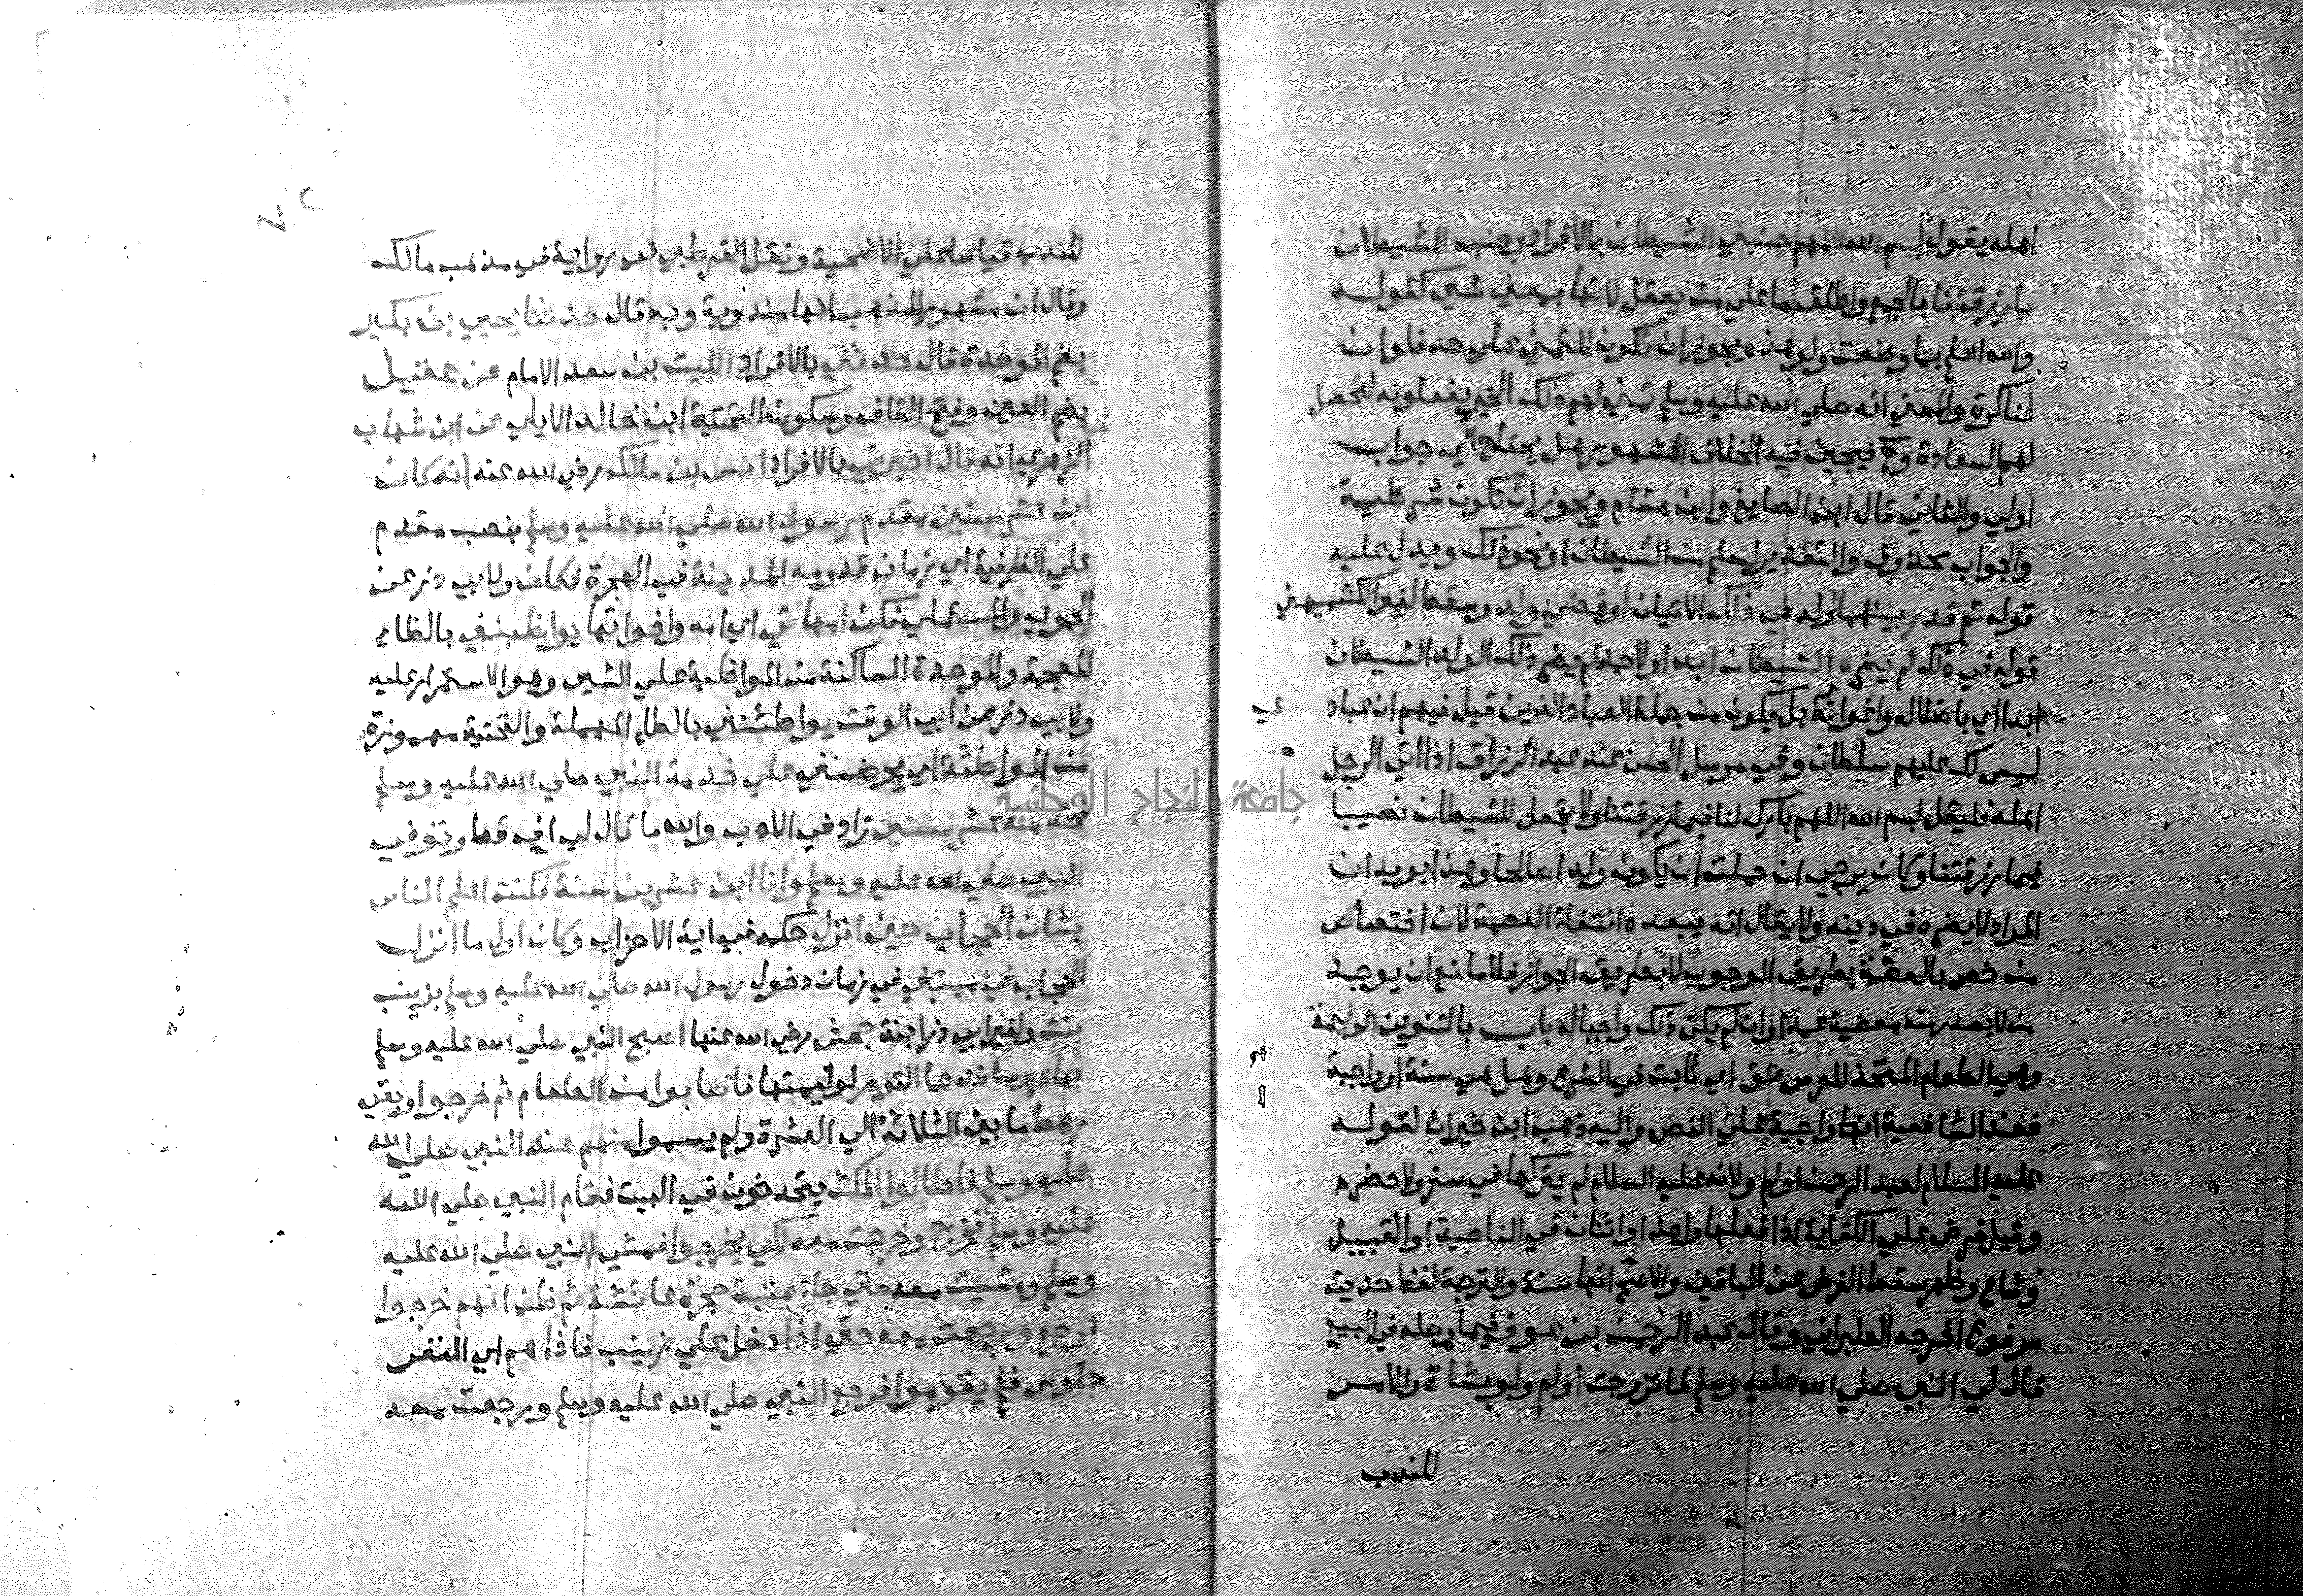 اهله يقول بسم الله اللهم جنبني الشيطان بالافراد وجنب الشيطان
ما رزقتنا بالجمع واطلق ما علي من يعقل لانها بمعني شي كقوله
والله اعلم بما وضعت ولو هذه يجوز ان تكون للتمني علي حد فلو ان
لنا كرة والمعني انه صلي الله عليه وسلم تمني لهم ذلك الخير يفعلونه لتحصل
لهم السعادة وح فيجيئ فيه الخلاف المشهور هل يحتاج الي جواب
اولي والثاني قال ابن الصايغ وابن هشام ويجوز ان تكون شرطية
والجواب محذوف والتقدير لسلم من الشيطان او نحو ذلك ويدل عليه
قوله ثم قدر بينهما ولد في ذلك الاتيان او قضي ولد وسقط لغير الكشميهني
قوله في ذلك لم يضره الشيطان ابدا ولاحمد لم يضر ذلك الولد الشيطان
ابدا اي باضلاله واغوائه بل يكون من جملة العباد الذين قيل فيهم ان عبادي
ليس لك عليهم سلطان وفي مرسل الحسن عند عبد الرزاق اذا اتي الرجل
اهله فليقل بسم الله اللهم بارك لنا فيما رزقتنا ولا تجعل للشيطان نصيبا
فيما رزقتنا وكان يرجي ان حملت ان يكون ولدا صالحا وهذا يويد ان
المراد لا يضره في دينه ولا يقال انه يبعده انتفاء العصمة لان اختصاص
من خص بالعصمة بطريق الوجوب لا بطريق الجواز فلا مانع ان يوجد
من لا يصدر منه معصية عمدا وان لم يكن ذلك واجبا له باب بالتنوين الوليمة
وهي الطعام المتخذ للعرس حق اي ثابت في الشرع وهل هي سنة او واجبة
فعند الشافعية انها واجبة علي النص واليه ذهب ابن خيران لقوله
عليه السلام لعبد الرحمن اولم ولانه عليه السلام لم يتركها في سفر ولا حضر
وقيل فرض علي الكفاية اذا فعلها واحد او اثنان في الناحية او القبيل
وشاع وظهر سقط الفرض عن الباقين والاصح انها سنة والترجمة لفظ حديث
مرفوع اخرجه الطبراني وقال عبد الرحمن بن عوف فيما وصله في البيع
قال لي النبي صلي الله عليه وسلم لما تزوجت اولم ولو بشاة والامر
للندب
للندب قياسا علي الاضحية ونقل القرطبي في رواية في مذهب مالك
وقال ان مشهور المذهب انها مندوبة وبه قال حدثنا يحيي بن بكير
بضم الموحدة قال حدثني بالافراد الليث بن سعد الامام عن عقيل
بضم العين وفتح القاف وسكون التحتية ابن خالد الايلي عن ابن شهاب
الزهري انه قال اخبرني بالافراد انس بن مالك رضي الله عنه انه كان
ابن عشر سنين مقدم رسول الله صلي الله عليه وسلم بنصب مقدم
علي الظرفية اي زمان قدومه المدينة في الهجرة فكان ولابي ذر عن
الحموي والمستملي فكن امهاتي اي امه واخواتها يواظبنني بالظاء
المعجمة والموحدة الساكنة من المواظبة علي الشي وهو الاستمرار عليه
ولابي ذر عن ابي الوقت يواطئنني بالطاء المهملة والتحتية مهموزة
من المواطئة اي يحرضنني علي خدمة النبي صلي الله عليه وسلم
فخدمته عشر سنين زاد في الادب والله ما قال لي اف قط وتوفي
النبي صلي الله عليه وسلم وانا ابن عشرين سنة فكنت اعلم الناس
بشان الحجاب حين انزل حكمه في اية الاحزاب وكان اول ما انزل
الحجاب في مبتني في زمان دخول رسول الله صلي الله عليه وسلم بزينب
بنت ولغير ابي ذر ابنة جحش رضي الله عنها اصبح النبي صلي الله عليه وسلم
بها عروسا فدعا القوم لوليمتها فاصابوا من الطعام ثم خرجوا وبقي
رهط ما بين الثلاثة الي العشرة ولم يسموا منهم عند النبي صلي الله
عليه وسلم فاطالوا المكث يتحدثون في البيت فقام النبي صلي الله
عليه وسلم فخرج وخرجت معه لكي يخرجوا فمشي النبي صلي الله عليه
وسلم ومشيت معه حتي جاء عتبة حجرة عائشة ثم ظن انهم خرجوا
فرجع ورجعت معه حتي اذا دخل علي زينب فاذا هم اي النفر
جلوس فلم يقوموا فرجع النبي صلي الله عليه وسلم ورجعت معه
جامعة النجاح الوطنية